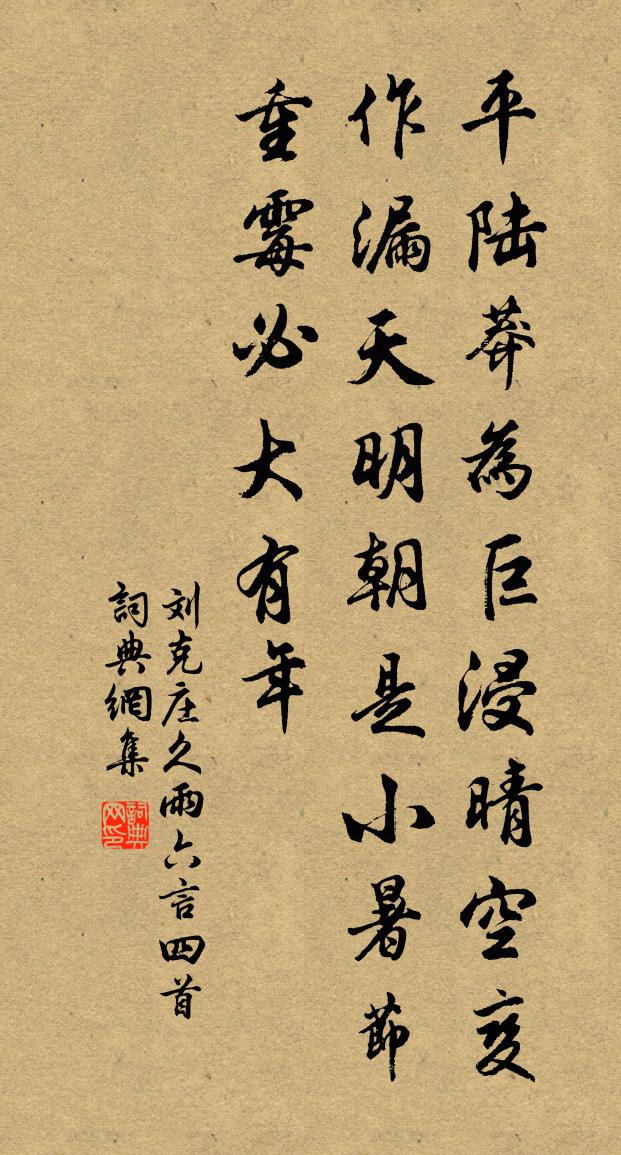 平陆莽為巨浸晴空变
作漏天明朝是小暑節
重霉必大有年
刘克庄久雨六言四首
詞典網集
詞典网印